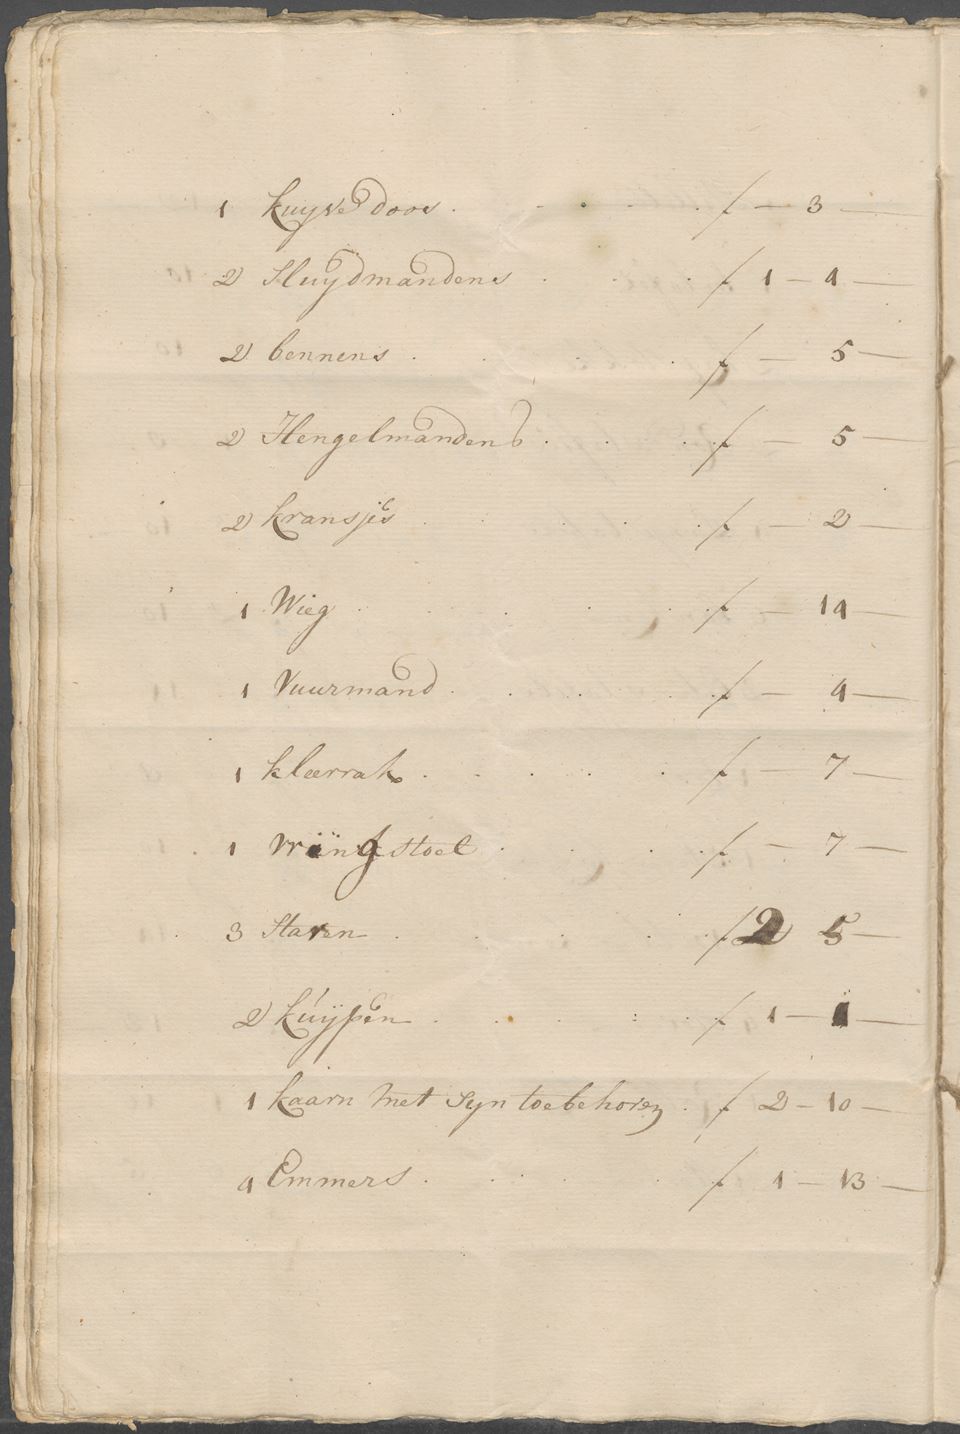 1 kuyve doos . . . . . ƒ — 3 —
2 Sluydmandens . . . ƒ 1 — 4 —
2 bennens . . . . ƒ — 5 —
2 Hengelmandens . . . ƒ — 5 —
2 kransjes . . . . ƒ — 2 —
1 Wieg . . . . . ƒ — 14 —
1 Vuurmand . . . . ƒ — 4 —
1 kleerrak . . . . . ƒ — 7 —
1 vringstoel . . . . ƒ — 7 —
3 Staven . . . . ƒ 2 5 —
2 kuÿpen . . . . . ƒ 1 — 1 —
1 kaarn met syn toebehoren . ƒ 2 — 10 —
4 Emmers . . . . ƒ 1 — 13 —